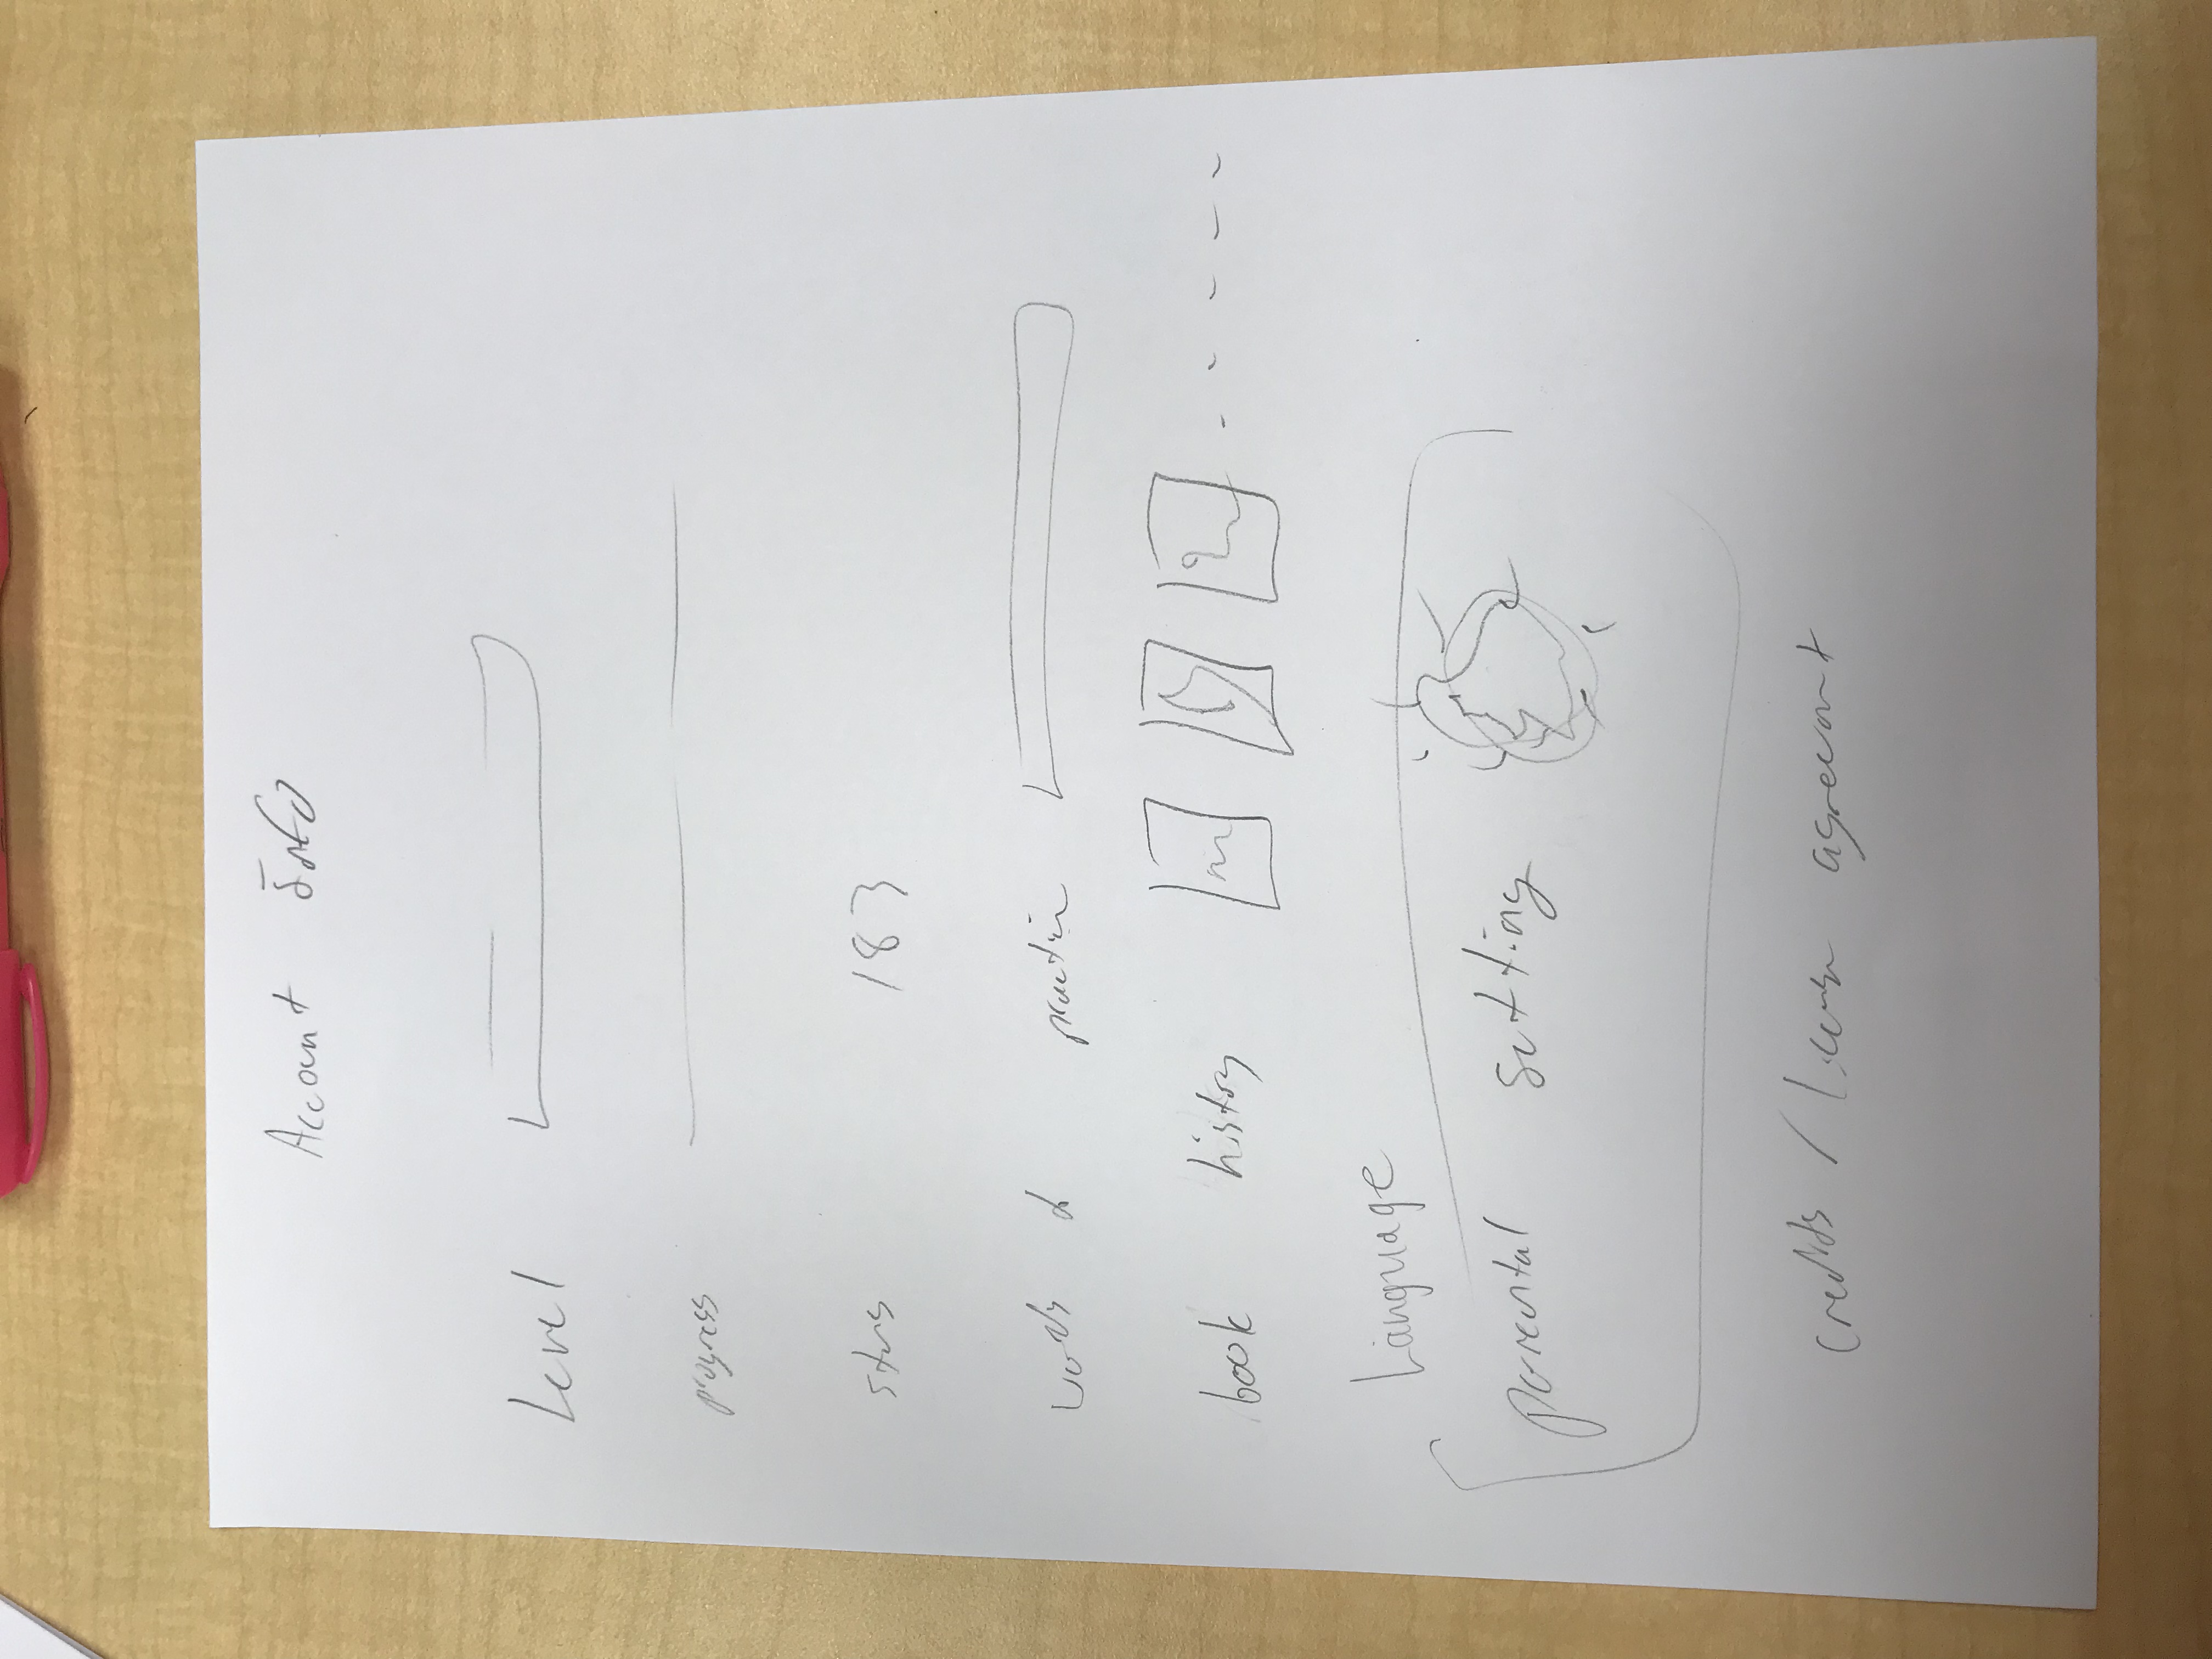 Account Info
Level
progress
stars 183
words to practice
book history
Language
parental setting
credits / license agreement